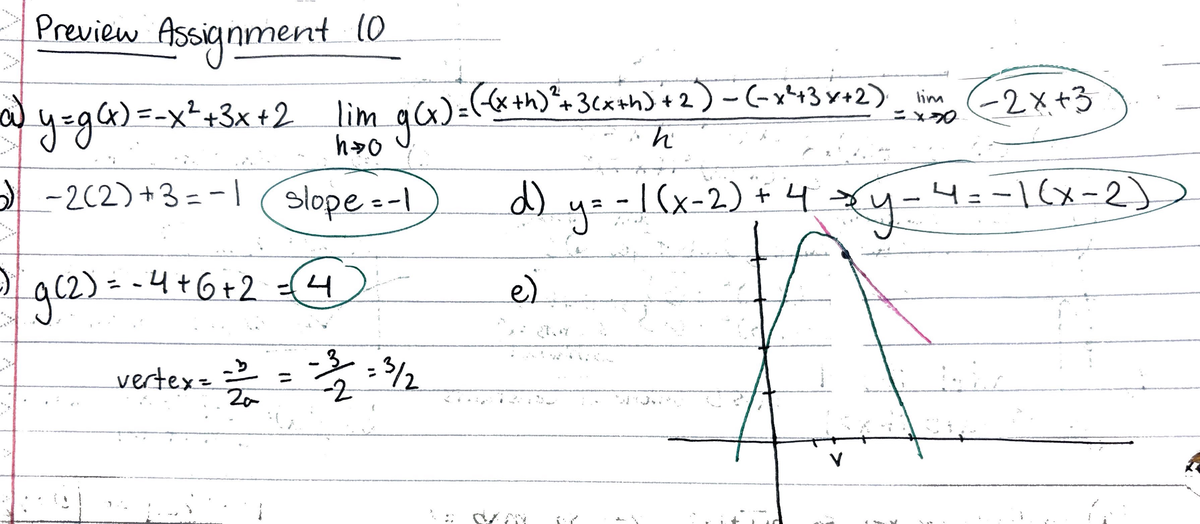 Preview Assignment 10
a) y=g(x)=-x²+3x+2 lim h→0 g(x)=(-(x+h)²+3(x+h)+2)-(-x²+3x+2) / h = lim x→0 -2x+3
b) -2(2)+3=-1 slope=-1
d) y=-1(x-2)+4 → y-4=-1(x-2)
) g(2)=-4+6+2=4
e)
vertex= -b/2a = -3/-2 = 3/2
V